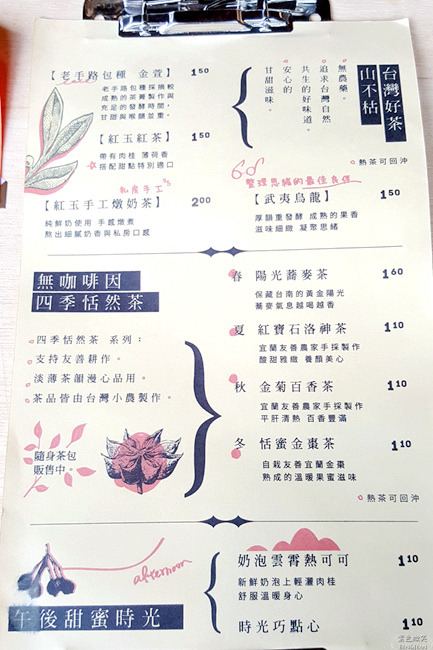 【老手路包種 金萱】 150
老手路包種採摘較
成熟的茶菁製作與
充足的發酵時間,
甘甜與喉韻並重。
【紅玉紅茶】 150
帶有肉桂 薄荷香
搭配甜點特別適口
私房手工
【紅玉手工燉奶茶】 200
純鮮奶使用 手感燉煮
熬出細膩奶香與私房口感
台灣好茶
山不枯
無農藥。
追求台灣自然
共生的好味道。
安心的
甘甜滋味。
熱茶可回沖
整理思緒的最佳良伴
【武夷烏龍】 150
厚韻重發酵 成熟的果香
滋味細緻 凝聚思緒
無咖啡因
四季恬然茶
四季恬然茶 系列:
支持友善耕作。
淡薄茶韻漫心品用。
茶品皆由台灣小農製作。
隨身茶包
販售中。
春 陽光蕎麥茶 160
保藏台南的黃金陽光
蕎麥氣息越喝越香
夏 紅寶石洛神茶 110
宜蘭友善農家手採製作
酸甜雅緻 養顏美心
秋 金菊百香茶 110
宜蘭友善農家手採製作
平肝清熱 百香豐滿
冬 恬蜜金棗茶 110
自栽友善宜蘭金棗
熟成的溫暖果蜜滋味
熱茶可回沖
afternoon
午後甜蜜時光
奶泡雲霄熱可可 110
新鮮奶泡上輕灑肉桂
舒服溫暖身心
時光巧點心 110
紫色微笑